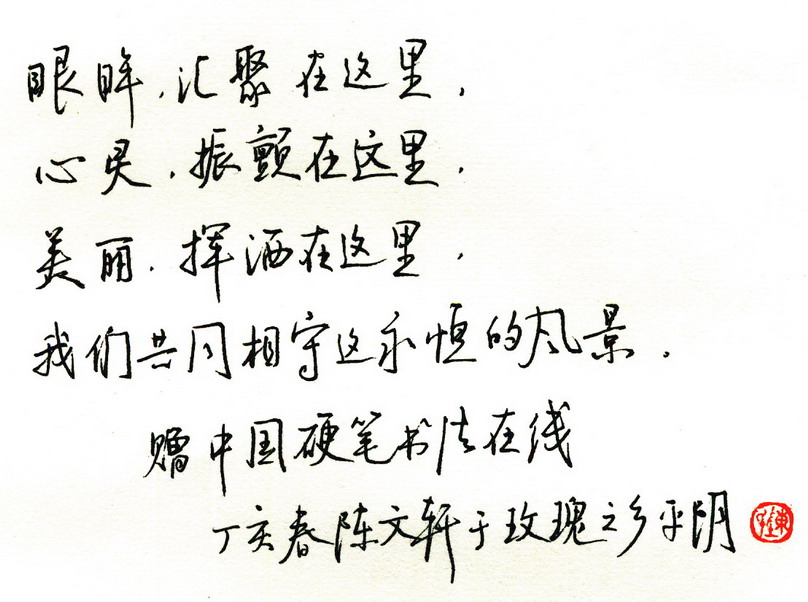 眼眸，汇聚在这里，
心灵，振颤在这里，
美丽，挥洒在这里，
我们共同相守这永恒的风景。
赠中国硬笔书法在线
丁亥春陈文轩于玫瑰之乡平阴